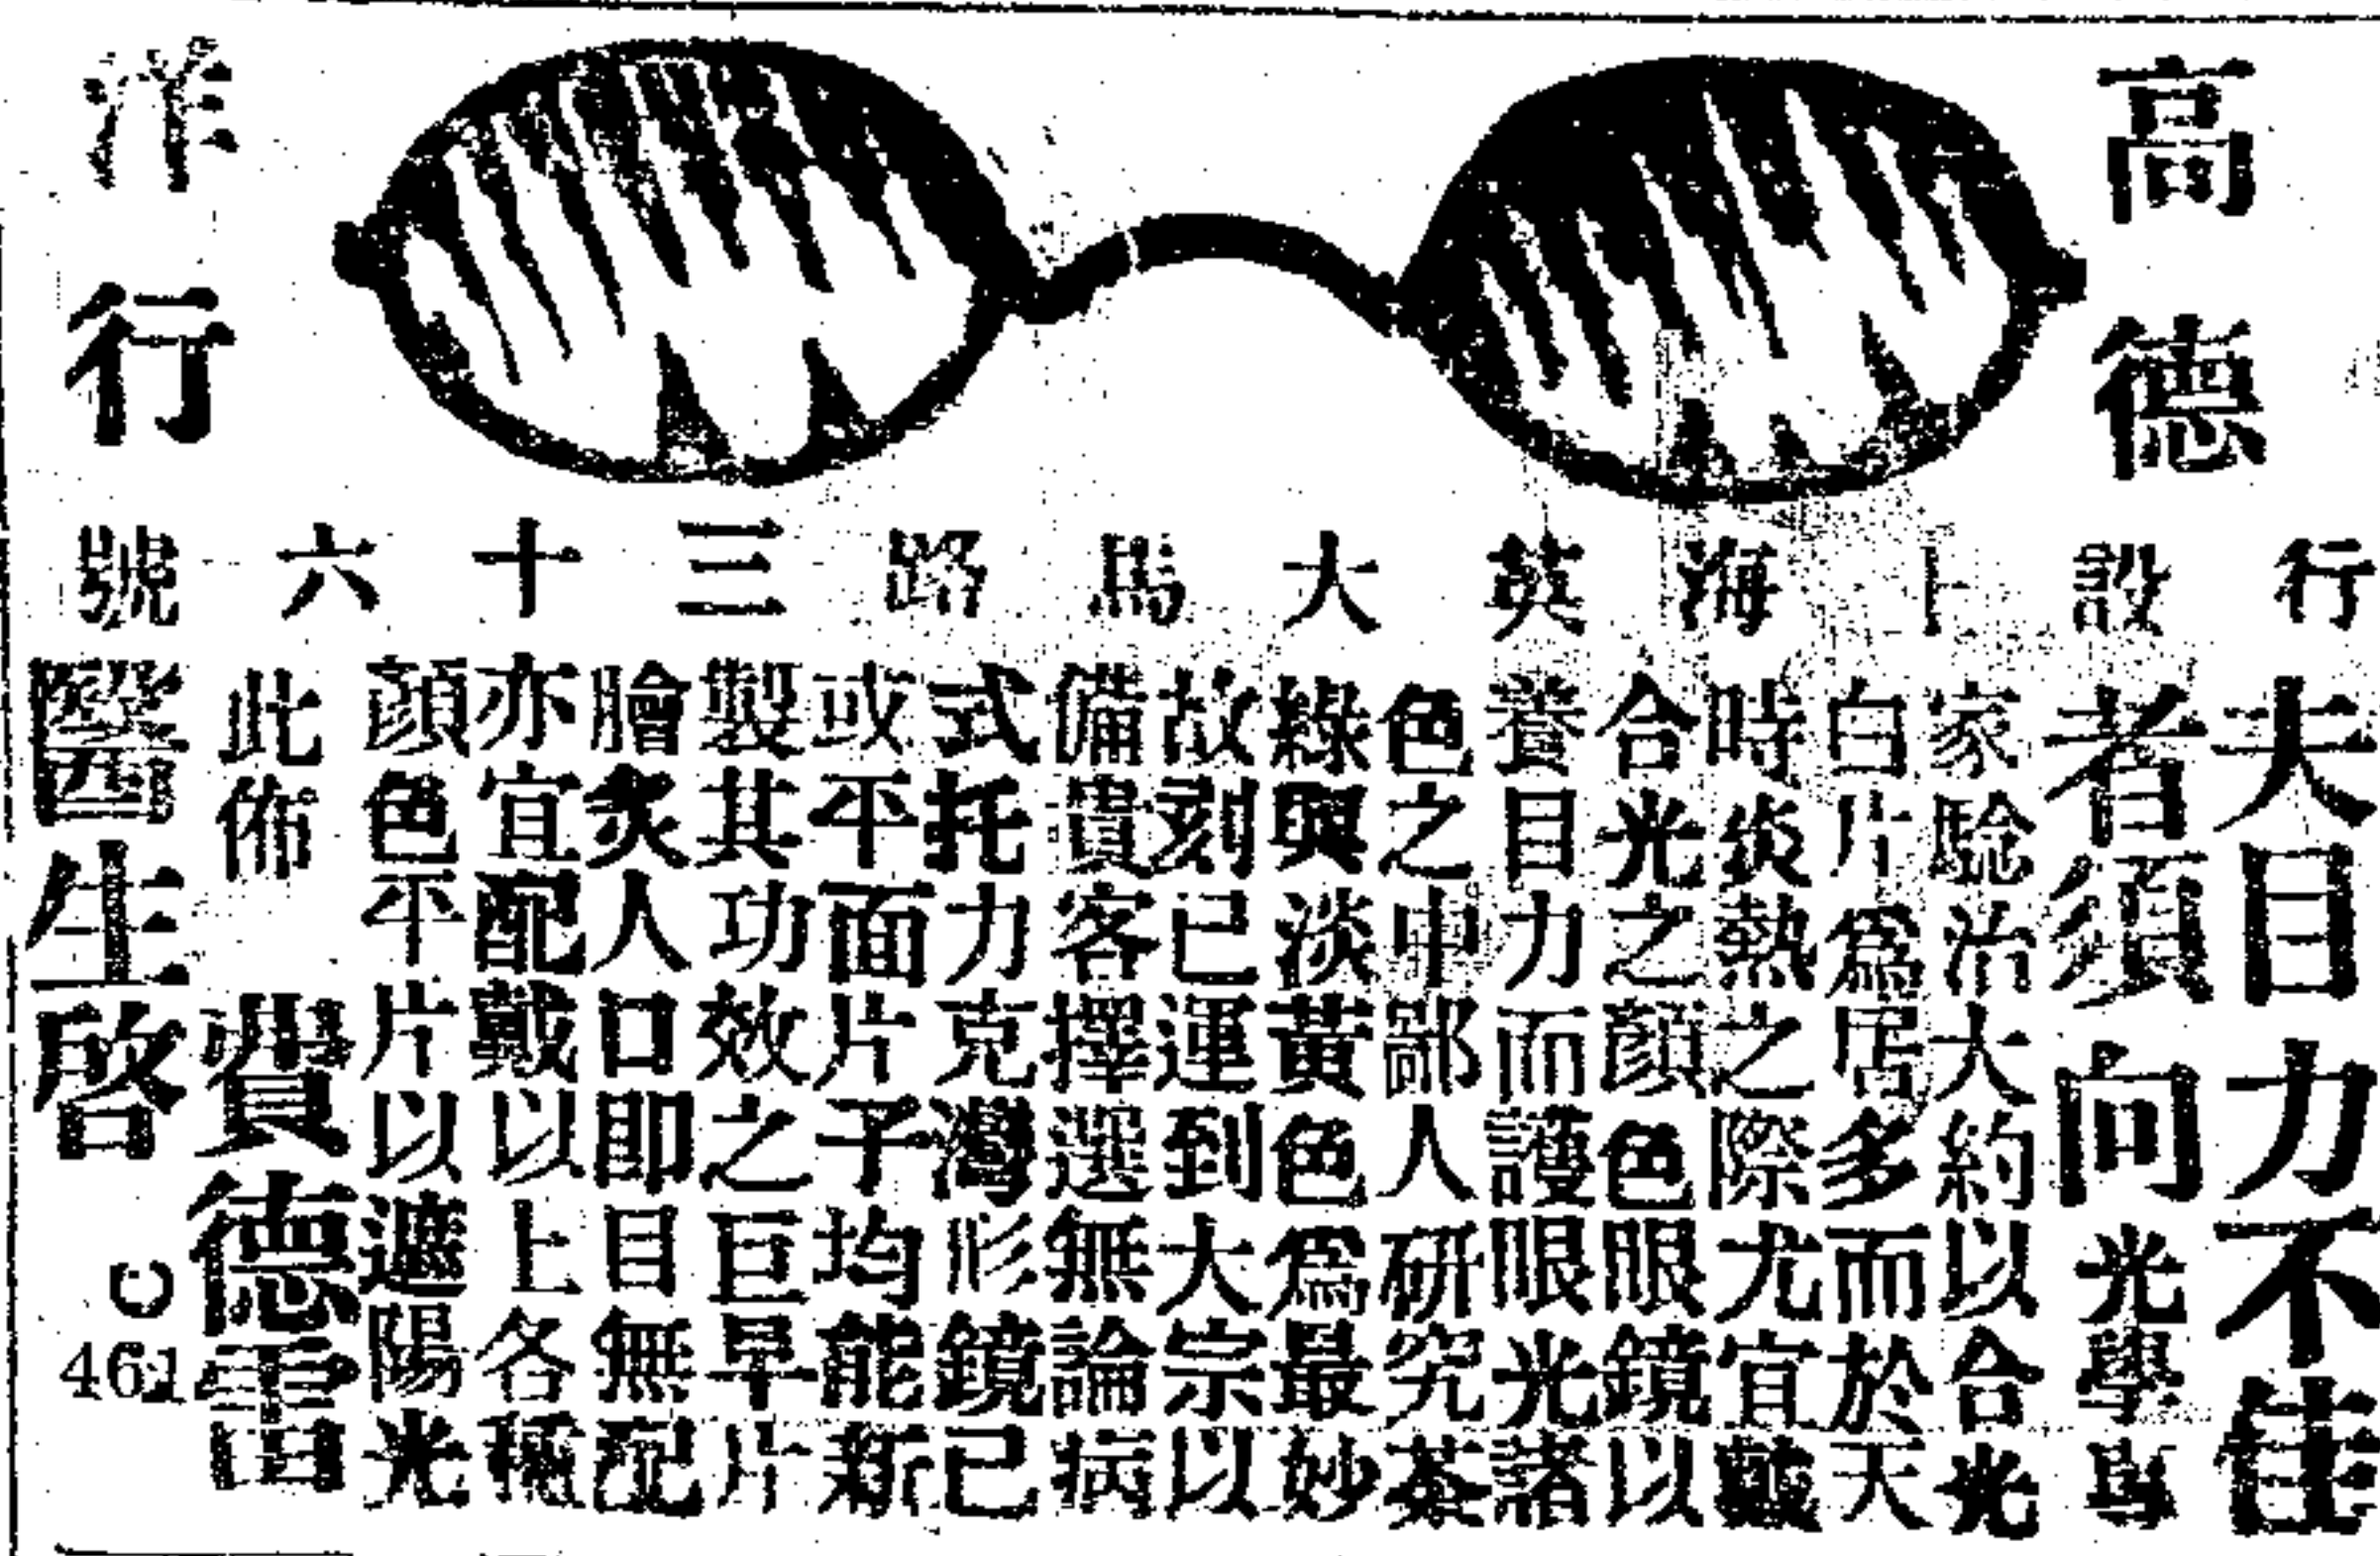 高德洋行
行設上海英大馬路三十六號
夫目力不佳
者須向光學專
家驗治大約以合光
白片爲居多而於天
時炎熱之際尤宜戴
合光之顏色眼鏡以
養目力而護眼光諸
色之中鄙人研究茶
綠與淡黃色爲最妙
故刻已運到大宗以
備貴客擇選無論病
式托力克灣形鏡已
或平面片子均能新
製其功效之巨早片
膾炙人口即目無配
亦宜配戴以上各種
顏色平片以遮陽光
此佈 費德雷
醫生啓
C461